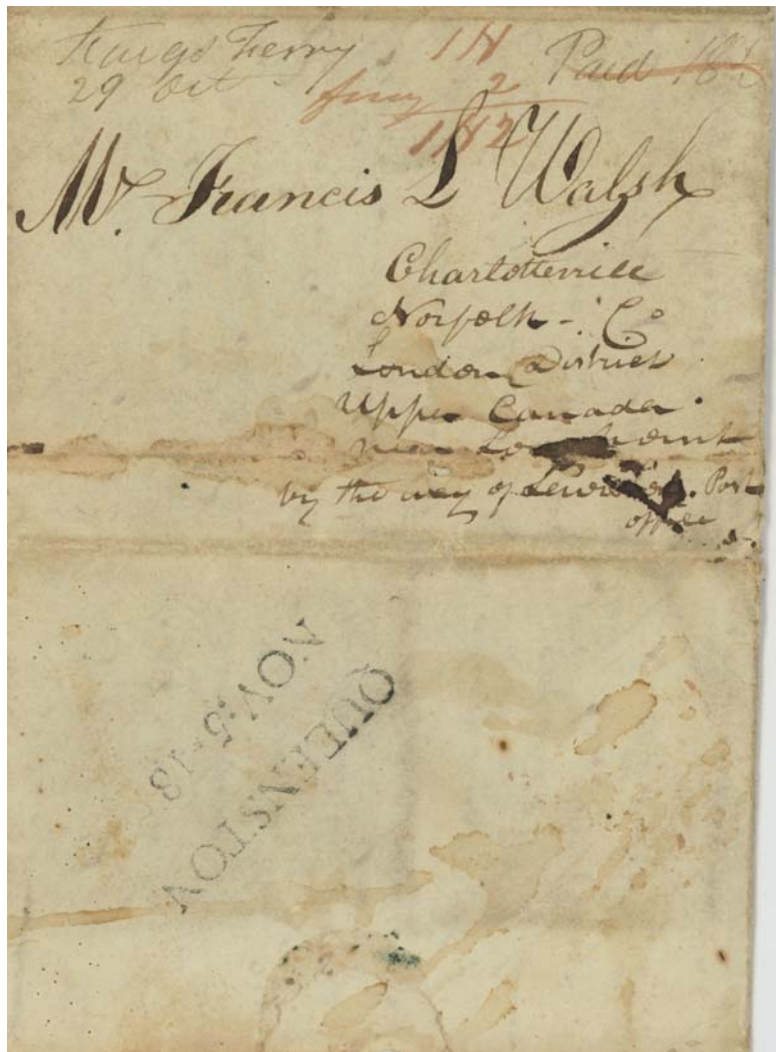 Kings Ferry
29 Oct
Paid 18½
1N
ferry 2
1N2
Mr. Francis L Walsh
Charlotteville
Norfolk - Co
London District
Upper Canada
near Long Point
by the way of Lewiston. Post
office
QUEENSTON
NOV:5*18